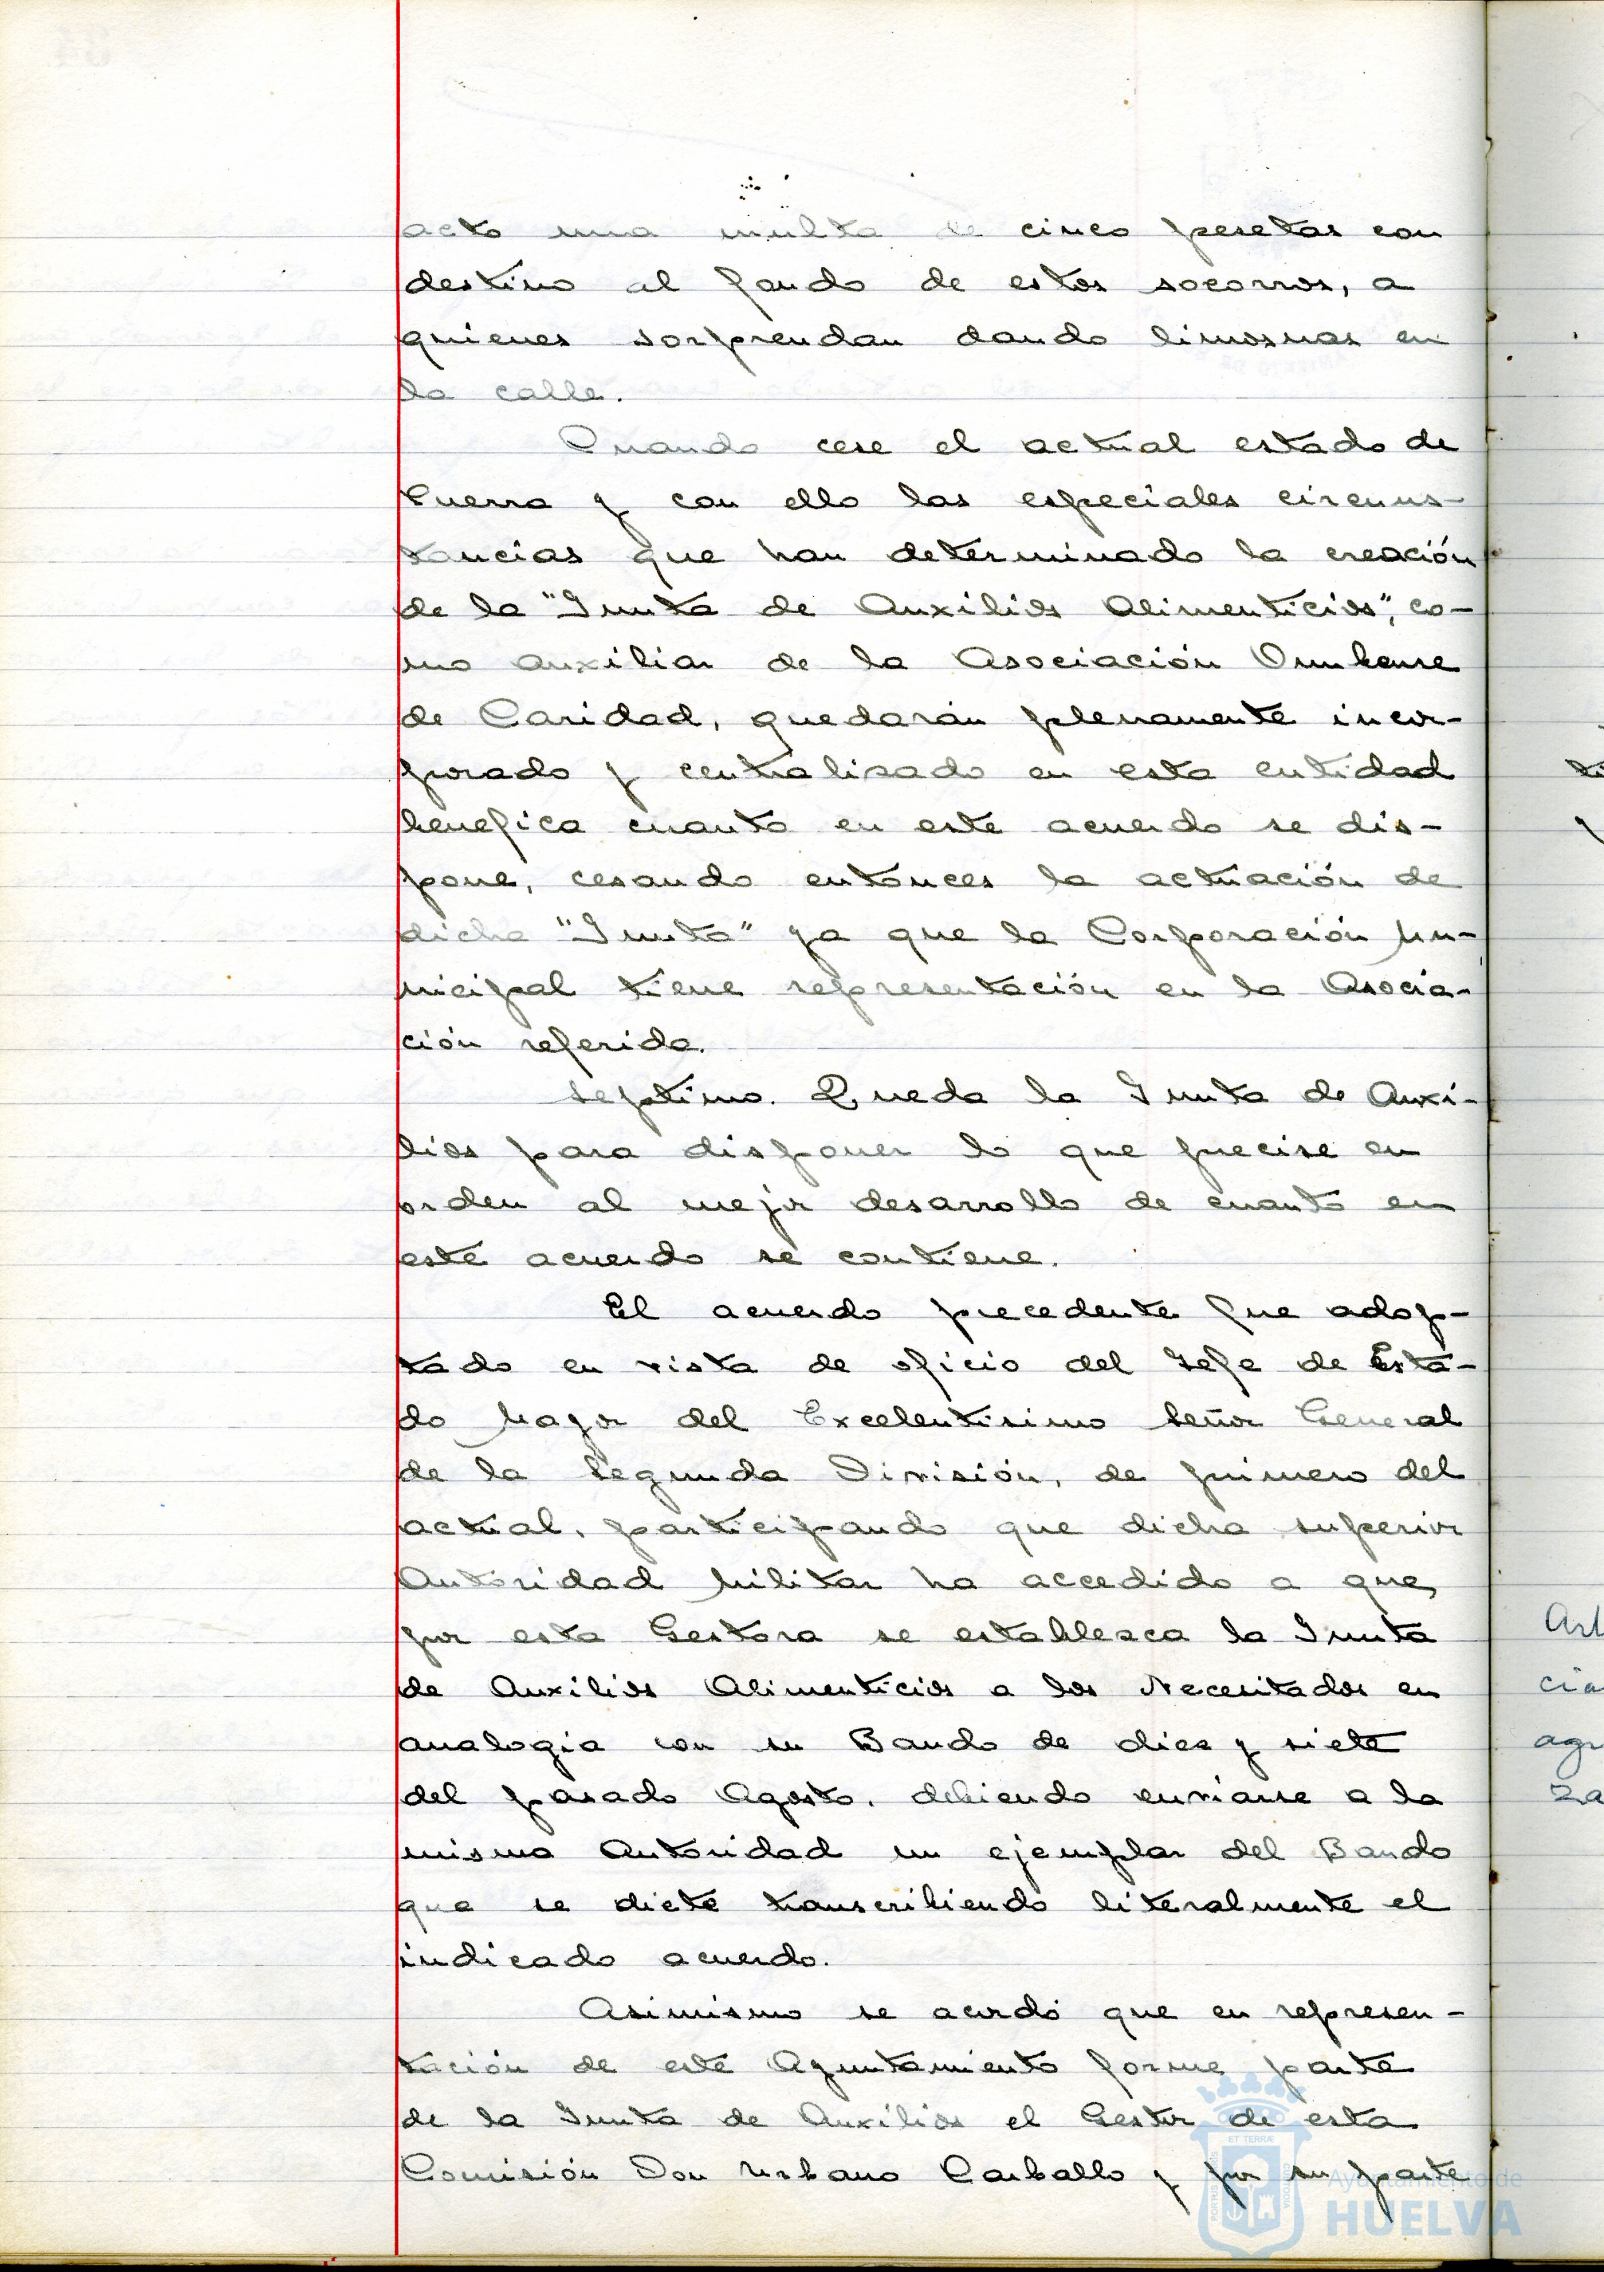 acto una multa de cinco pesetas con
destino al fondo de estos socorros, a
quienes sorprendan dando limosnas en
la calle.
Cuando cese el actual estado de
Guerra y con ello las especiales circuns-
tancias que han determinado la creación
de la "Junta de Auxilios Alimenticios", co-
mo auxiliar de la Asociación Onubense
de Caridad, quedarán plenamente incor-
porado y centralizado en esta entidad
benefica cuanto en este acuerdo se dis-
pone, cesando entonces la actuación de
dicha "Junta" ya que la Corporación Mu-
nicipal tiene representación en la Asocia-
ción referida.
Septimo. Queda la Junta de Auxi-
lios para disponer lo que precise en
orden al mejor desarrollo de cuanto en
este acuerdo se contiene.
El acuerdo precedente fue adop-
tado en vista de oficio del Jefe de Esta-
do Mayor del Excelentisimo Señor General
de la Segunda División, de primero del
actual, participando que dicha superior
Autoridad Militar ha accedido a que,
por esta Gestora se establezca la Junta
de Auxilios Alimenticios a los Necesitados en
analogia con su Bando de diez y siete
del pasado Agosto, debiendo enviarse a la
misma Autoridad un ejemplar del Bando
que se dicte transcribiendo literalmente el
indicado acuerdo.
Asimismo se acordó que en represen-
tación de este Ayuntamiento forme parte
de la Junta de Auxilios el Gestor de esta
Comisión Don Urbano Carballo y por su parte
Ayuntamiento de
HUELVA